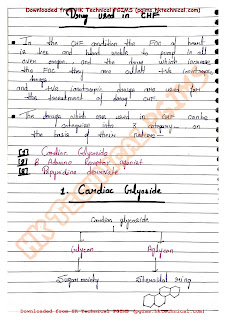 Downloaded from HK Technical PGIMS (pgims.hktechnical.com)
Drug used in CHF
In the CHF condition the FOC of heart
is less and Heart unable to pump in all
over organ, and the drug which increase
the FOC they are called +ve inotropic
drugs
and +ve inotropic drugs are used for
the treatment of drug CHF
The drugs which are used in CHF can be
categories into 3 category on
the basis of their
[1] Cardiac Glycoside
[2] B Adreno Receptor agonist
[3] derivative
1. Cardiac Glycoside
Cardiac glycoside
Glycon
Aglycon
Sugar moiety
Steroidal ring
Downloaded from HK Technical PGIMS (pgims.hktechnical.com)